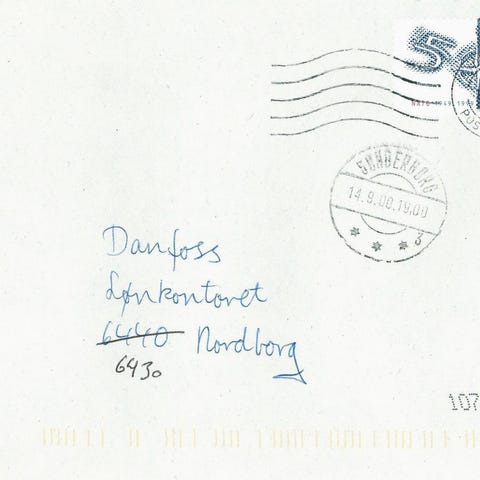 50
NATO 1949-1999
POS
SØNDERBORG
14.9.00.19.00
3
Danfoss
Lønkontoret
6440 Nordborg
6430
107